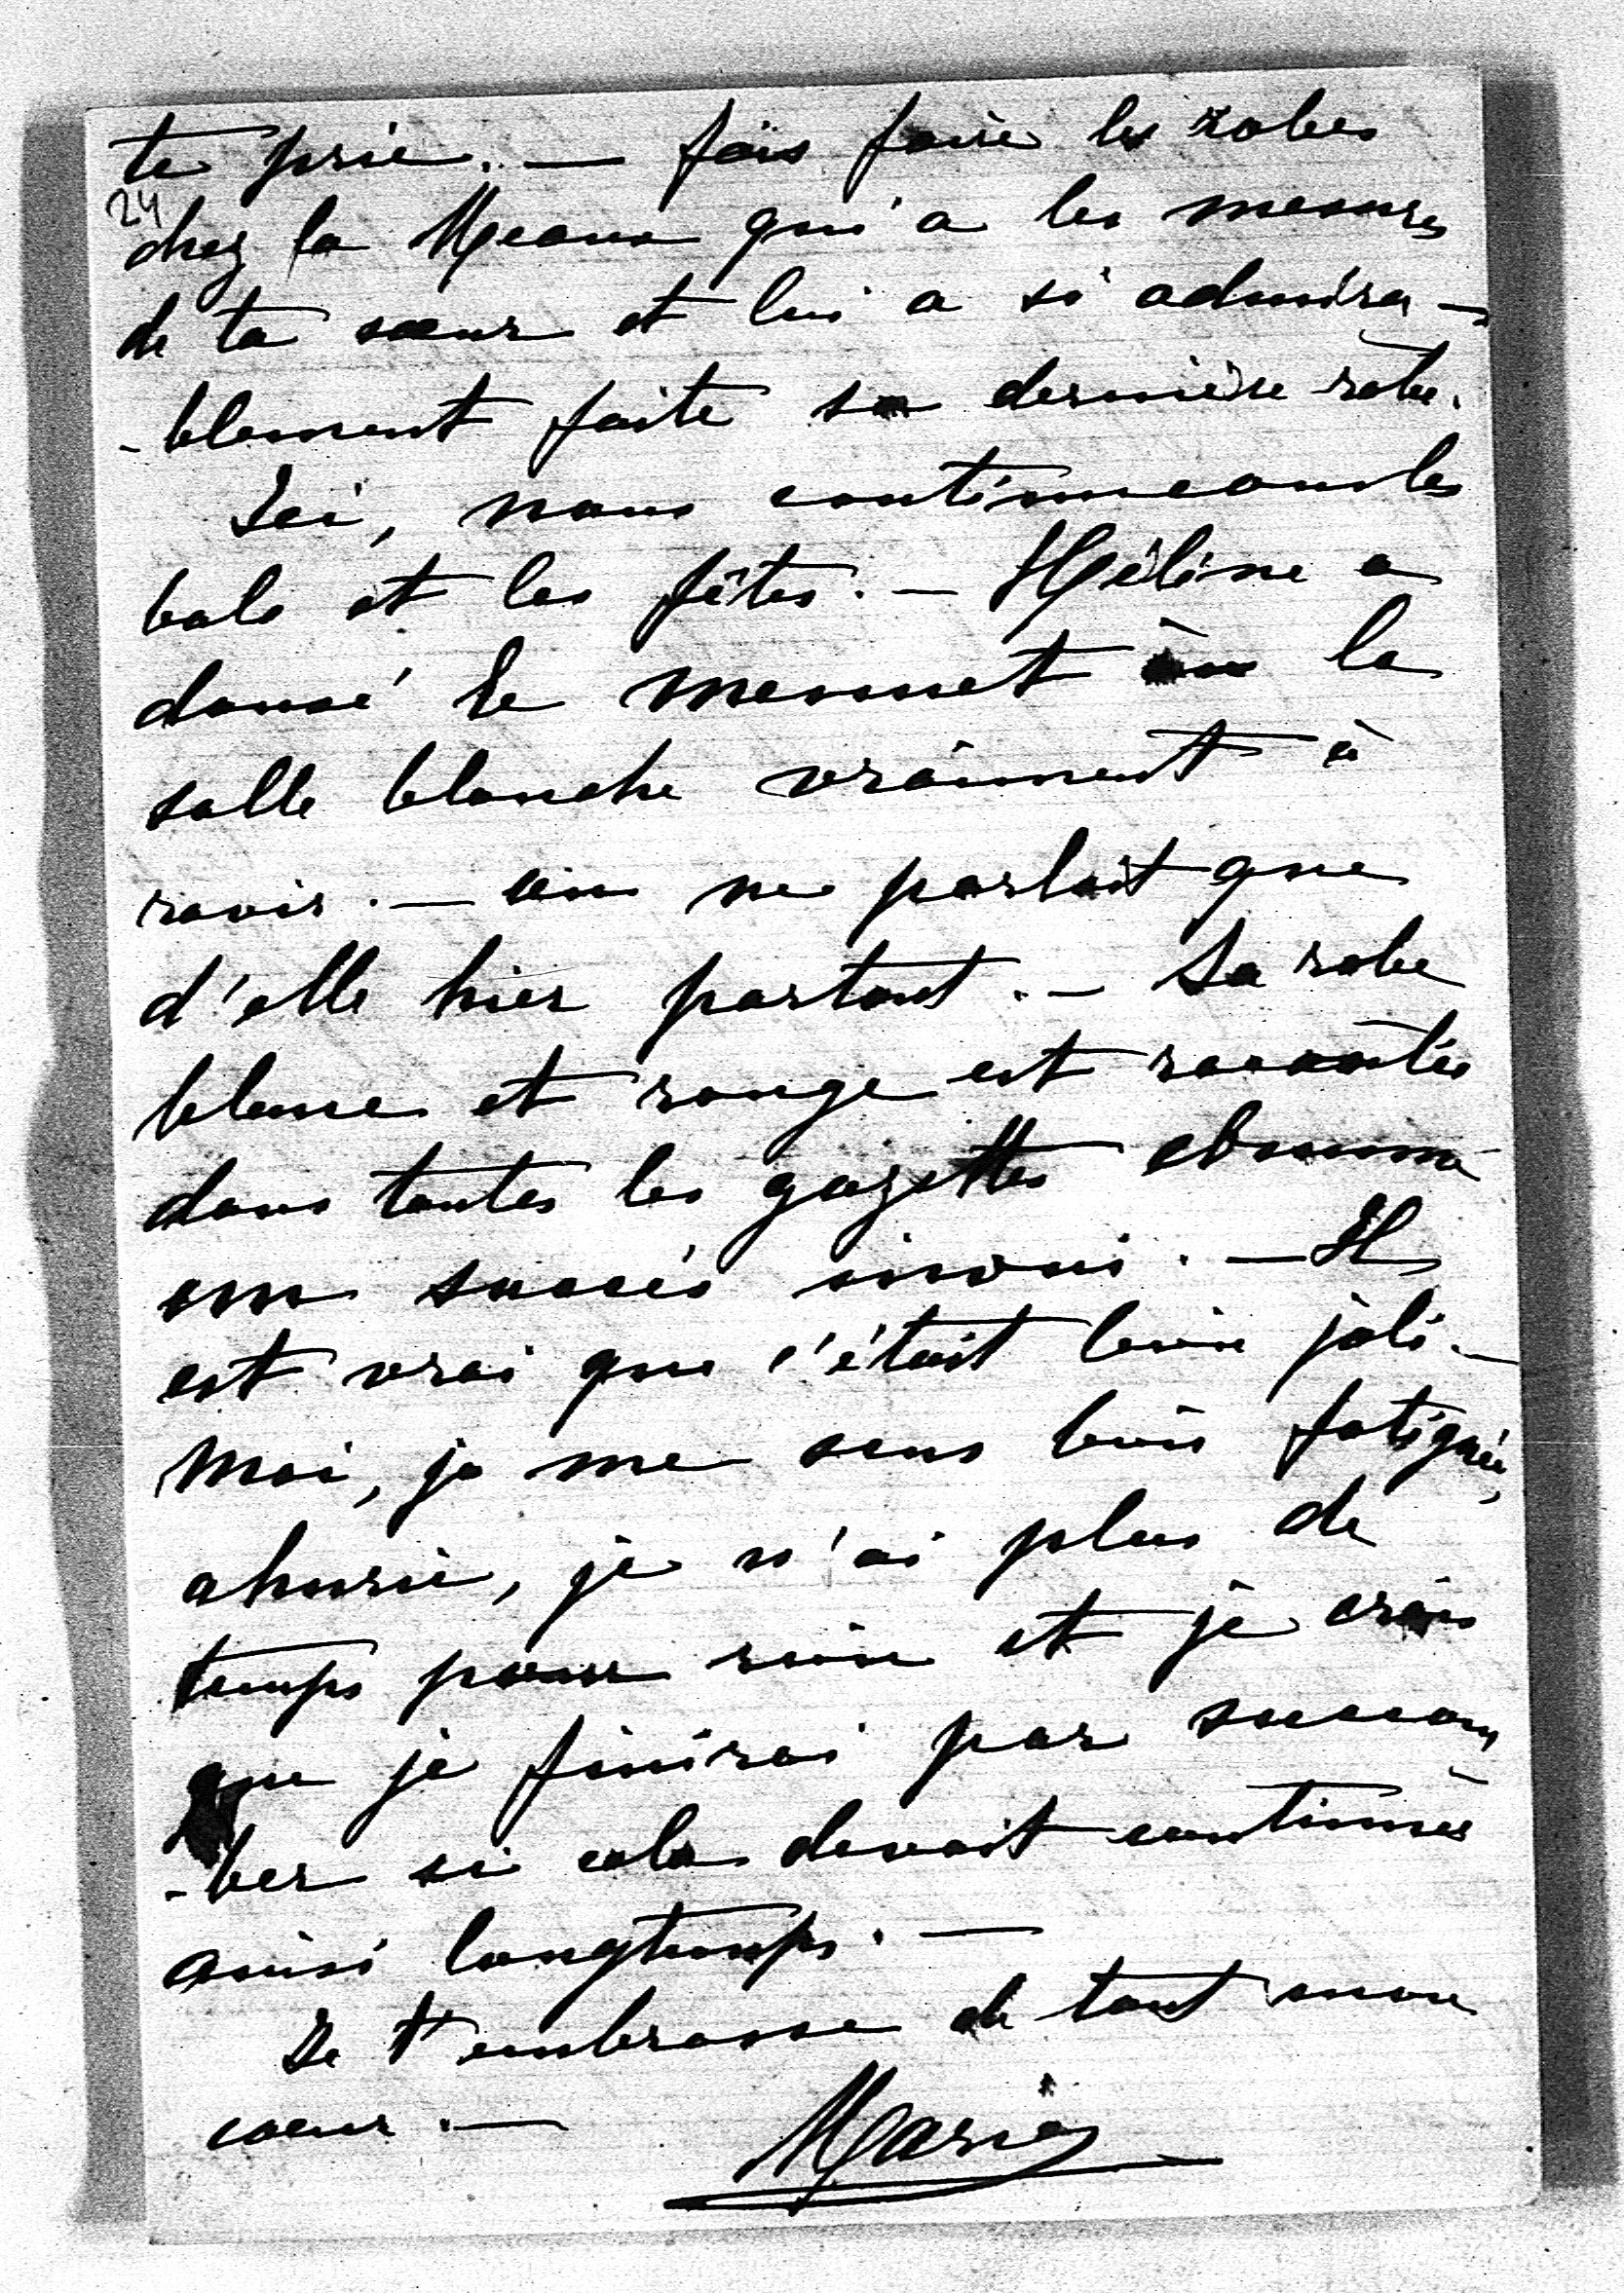 te prie. — fais faire les robes
24
chez la Meaux qui a les mesures
de ta sœur et lui a si admira-
-blement faite sa dernière robe.
Ici, nous continuons les
bals et les fêtes. — Hélène a
dansé le menuet à la
salle blanche vraiment à
ravir. — on ne parlait que
d'elle hier partout. — Sa robe
blanc et rouge est racontée
dans toutes les gazettes
un succès inoui. — Il
est vrai que c'était bien joli. —
Moi, je me sens bien fatiguée,
ahurie, je n'ai plus de
temps pour rien et je crois
que je finirai par succom
-ber si cela devait continuer
ainsi longtemps. —
Je t'embrasse de tout mon
cœur. — Marie